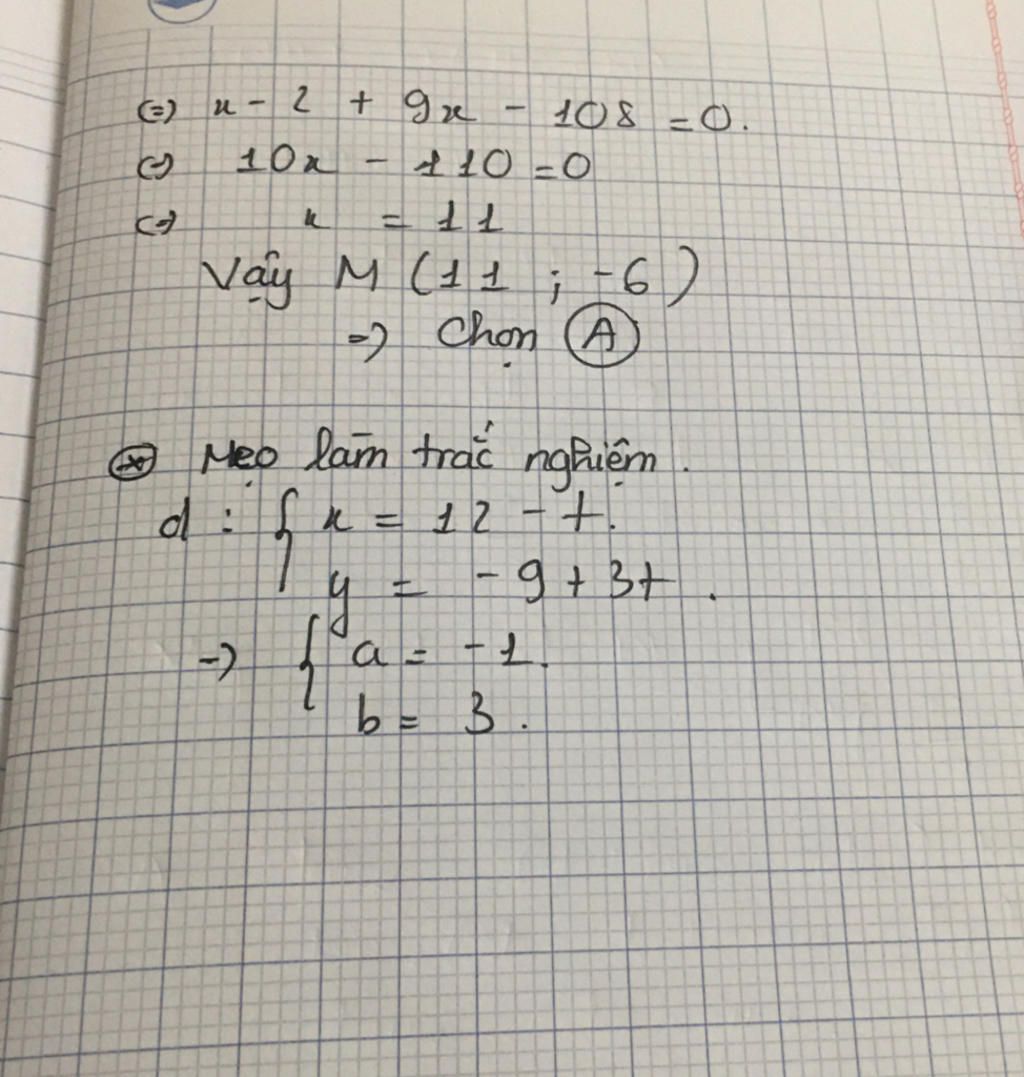 (=) x - 2 + 9x - 108 = 0.
(=) 10x - 110 = 0
(=) x = 11
Vậy M (11 ; -6)
=> Chọn A
* Mẹo làm trắc nghiệm.
d : { x = 12 - t.
y = -9 + 3t.
-> { a = -1.
b = 3.